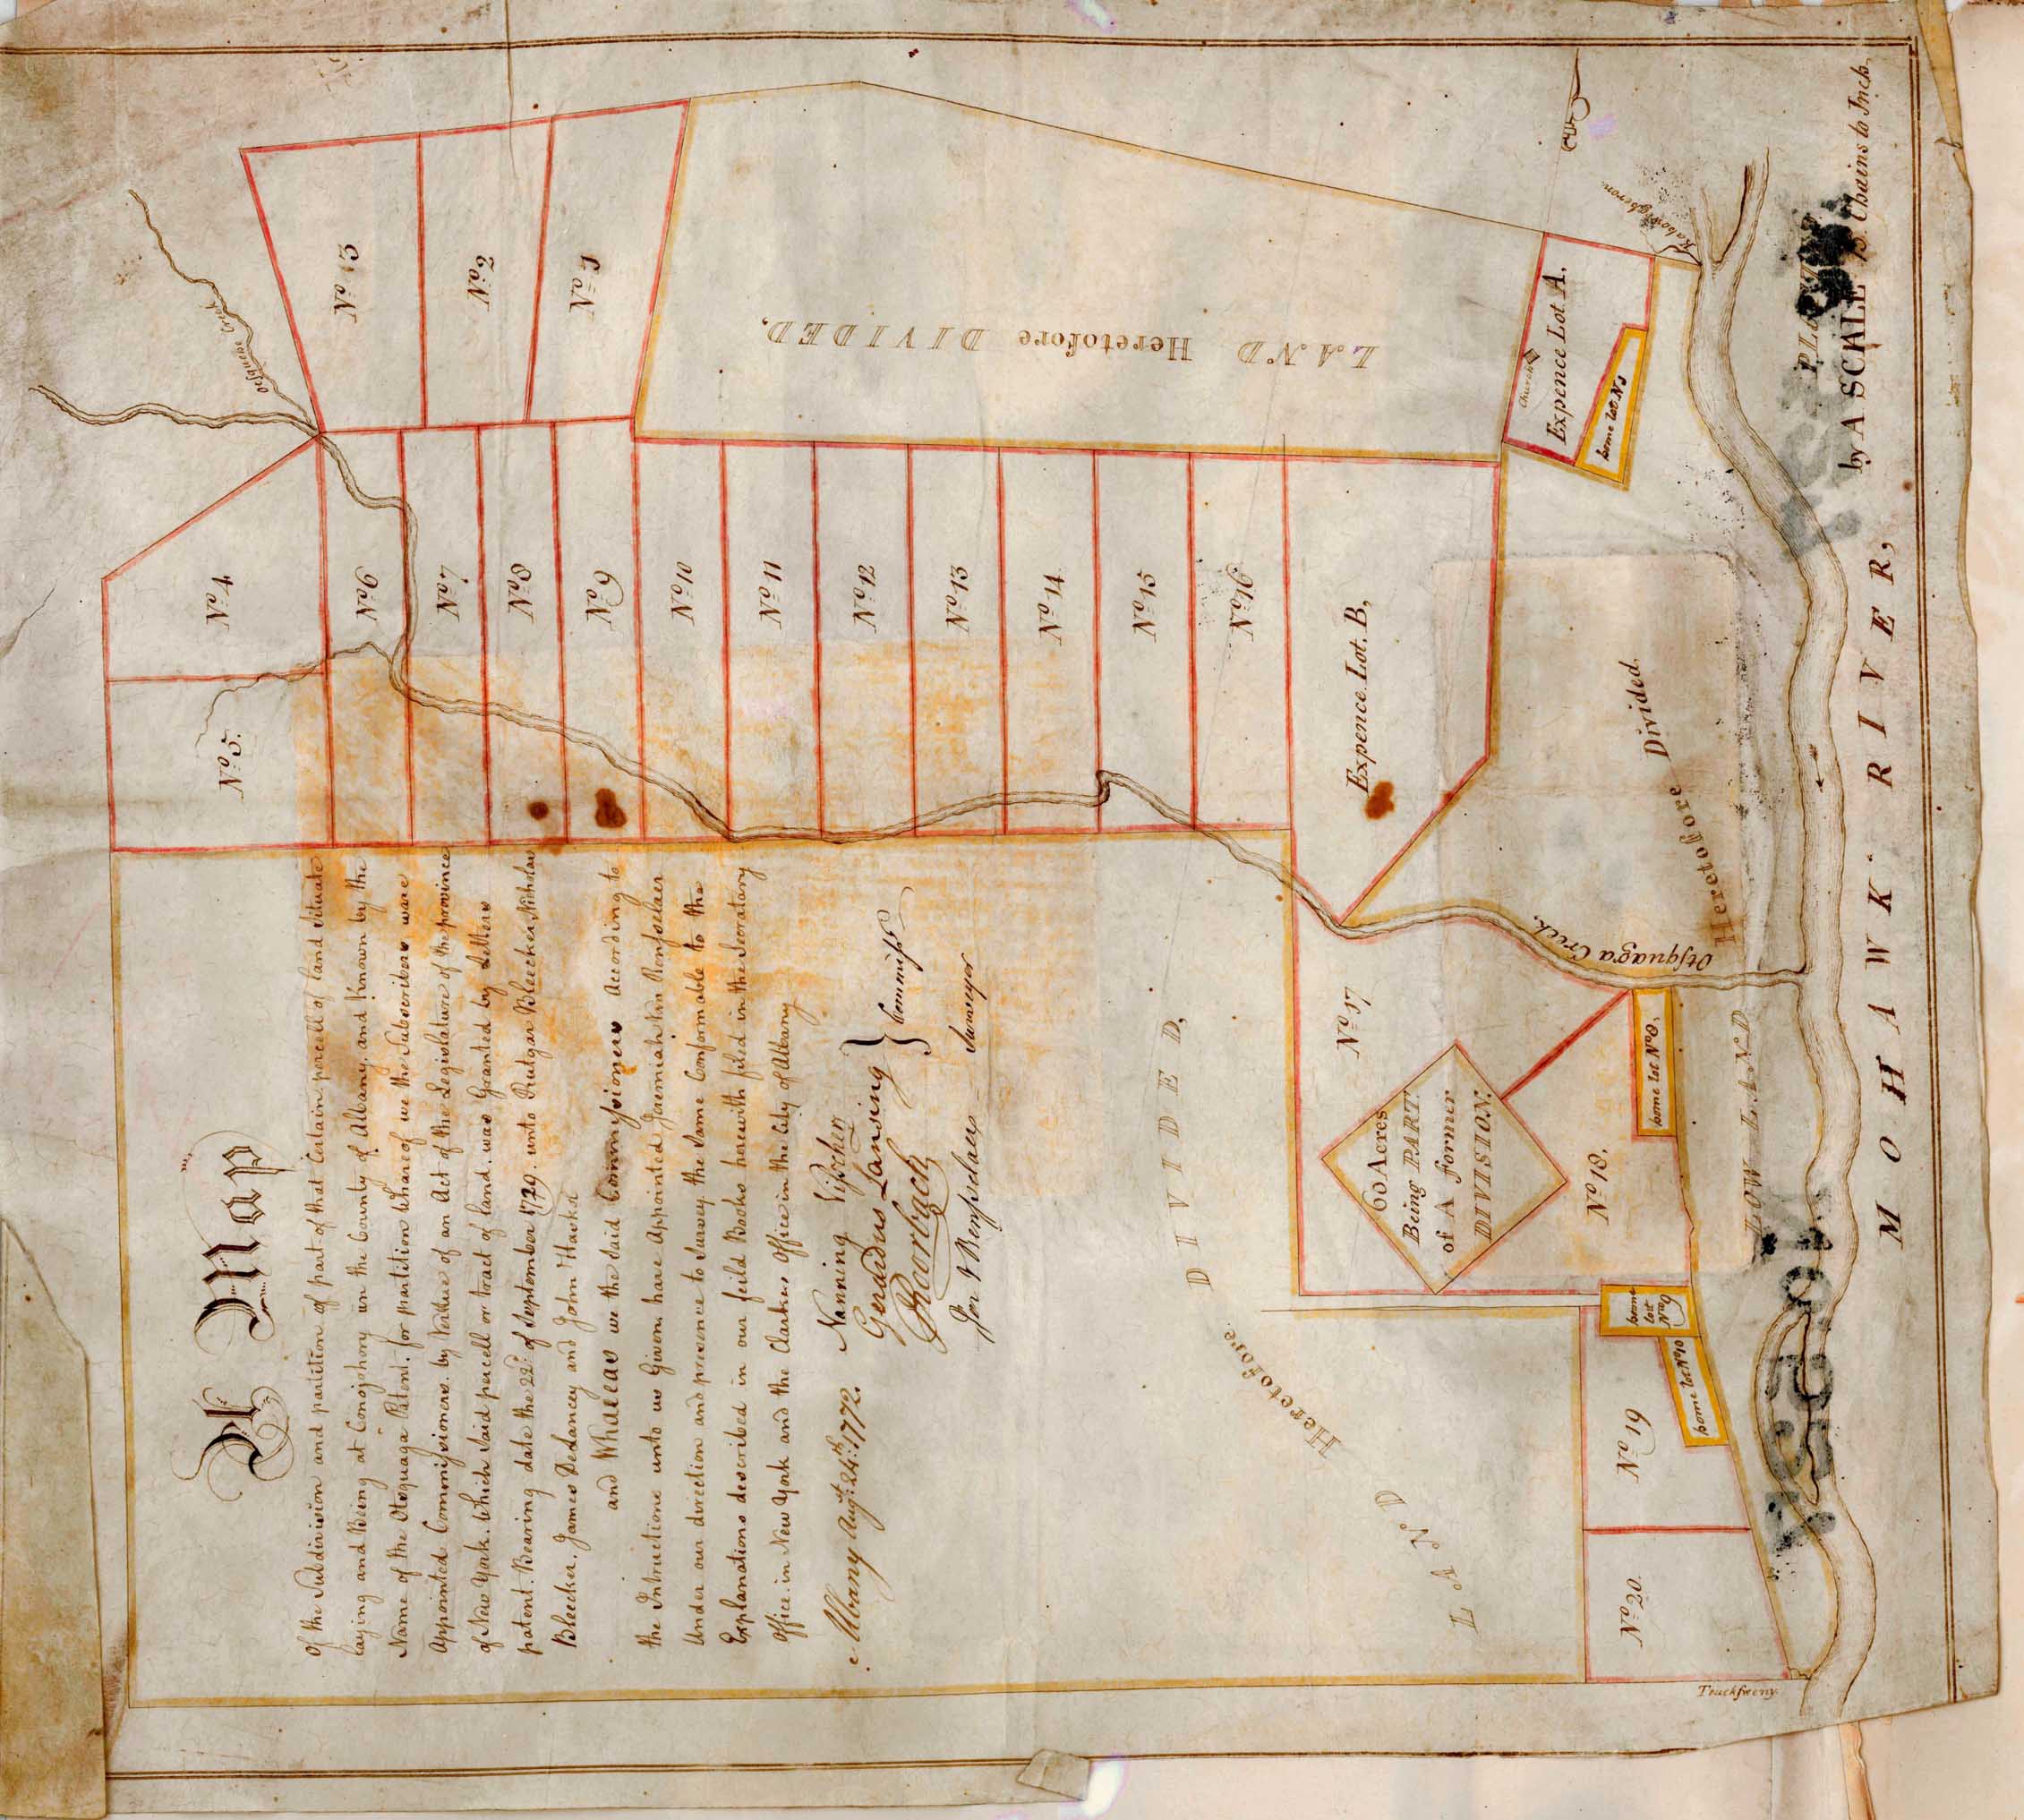 A Map
Of the Subdivision and partition of part of that Certain percell of land Situate
laying and Being at Conojohory in the County of Albany, and Known by the
Name of the Otsquaga Patent. for partition Whareof we the Subscribers were
Appointed Commissioners. by Vertue of an Act of the Legislature of the province
of New York. Which Said percell or tract of land. was Granted by Letters
patent. Bearing date the 22d of September 1729. unto Rutgar Bleecker Nicholas
Bleecker. James Delancy and John Haskol
and Whareas we the Said Commissioners According to
the Intructions unto us Given, have Appointed Jeremiah Van Renfselaer
Under our direction and presence to Survey the Same Conformable to the
Explanations described in our feild Books herewith filed in the Secratary
Office in New York and the Clarkes Office in the City of Albany
Albany Augt. 24th: 1772.
Nanning Visscher
Gerardus Lansing
Roorback
Commiss
Jer V Renfselaer Surveyor
Otsquene Creek
No 13
No 2
No 1
No 4
No 5.
No 6
No 7
No 8
No 9
No 10
No 11
No 12
No 13
No 14
No 15
No 16
LAND Heretofore DIVIDED,
Expence Lot A,
Church
home lot No 1
Expence Lot. B,
Heretofore Divided.
Otsquaga Creek.
No 17
60 Acres
Being PART
of A former
DIVISION.
No 18.
home lot No 8,
home
lot
No 9
home lot No 10
No 19
No 20.
LAND Heretofore DIVIDED,
LOW LAND
MOHAWK RIVER,
by A SCALE 15 Chains to Inch.